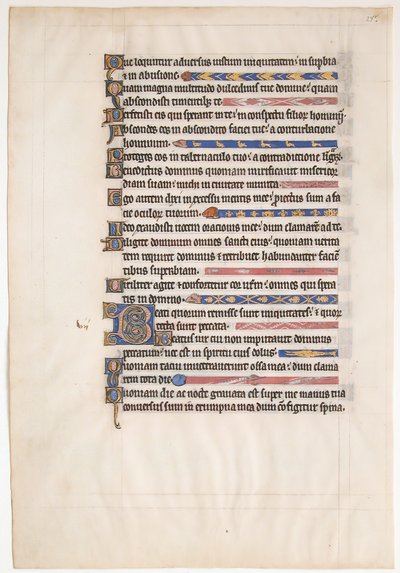 Que loquntur adversus iustum iniquitatem: in supbia
& in abusione.
Quam magna multitudo dulcedinis tue domine: quam
abscondisti timentib; te.
Perfecisti eis qui sperant in te: in conspectu filior hominum.
Abscondes eos in abscondito faciei tue: a conturbacione
hominum.
Proteges eos in tabernaculo tuo: a contradictione
Benedictus dominus quoniam mirificavit misericor
diam suam: michi in civitate munita.
Ego autem dixi in excessu mentis mee: proiectus sum a fa
cie oculorum tuorum.
Ideo exaudisti vocem oracionis mee: dum clamarem ad te.
Diligite dominum omnes sancti eius: quoniam verita
tem requiret dominus & retribuet habundanter facien
tibus superbiam.
Viriliter agite & confortetur cor vrm: omnes qui spera
tis in domino.
Beati quorum remisse sunt iniquitates: & quor
tecta sunt peccata.
Beatus vir cui non imputavit dominus
peccatum: nec est in spiritu eius dolus.
Quoniam tacui inveteraverunt ossa mea: dum clama
rem tota die.
Quoniam die ac nocte gravata est super me manus tua
conversus sum in erumpna mea dum configitur spina.